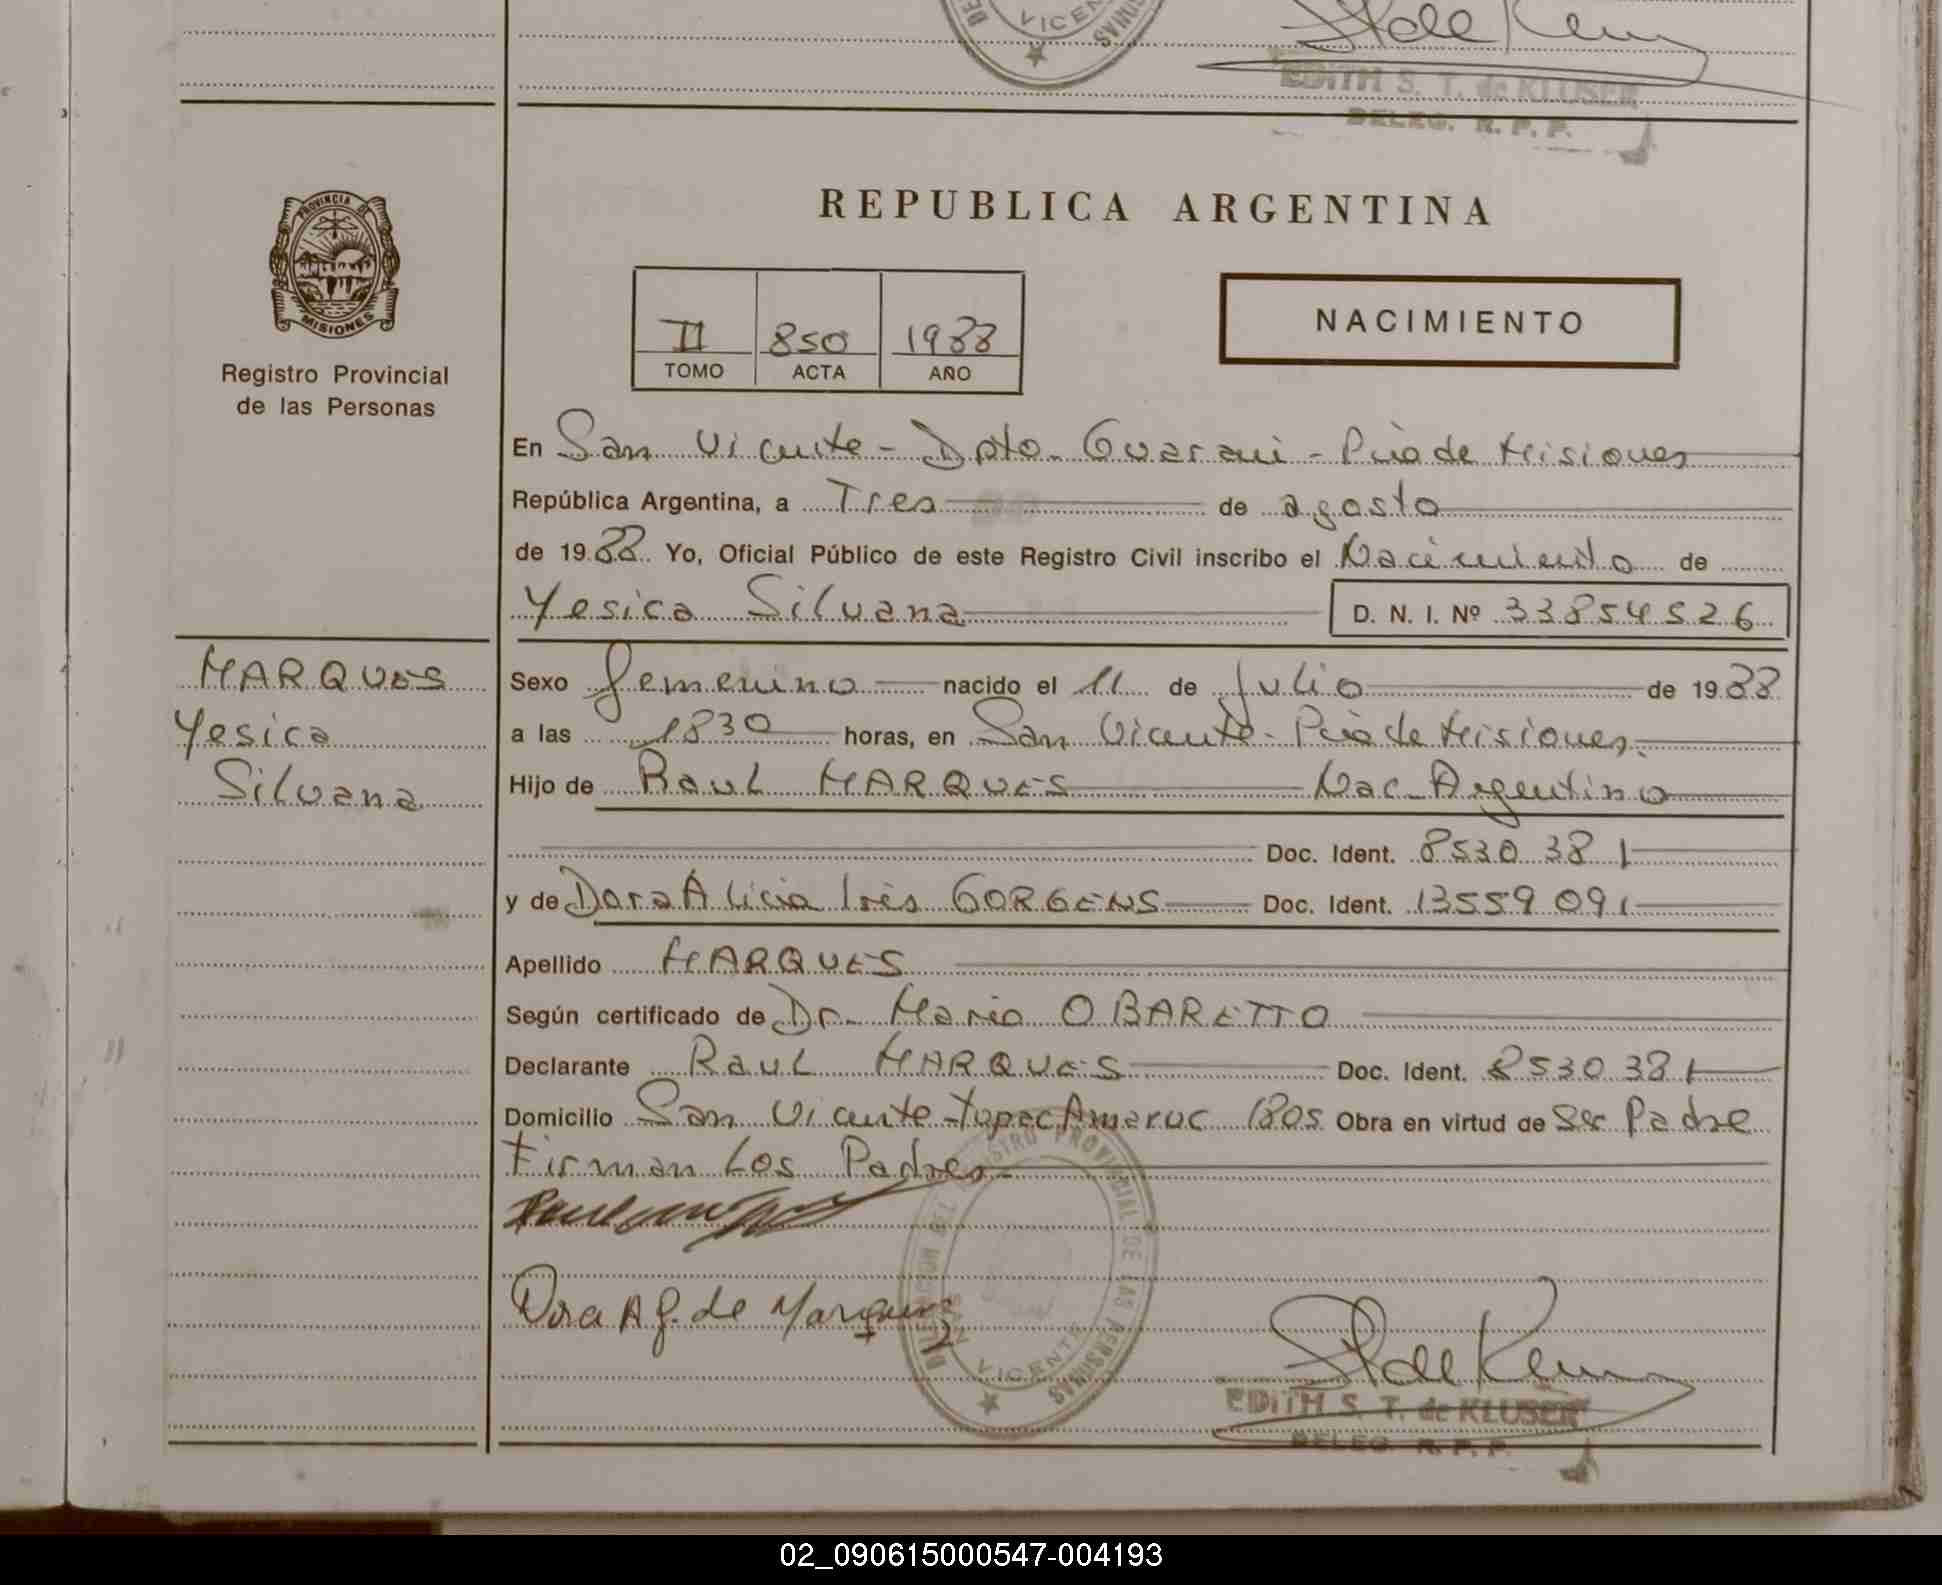 VICENTE
EDITH S. T. de KLUSER
DELEG. R. P. P.
PROVINCIA DE
MISIONES
Registro Provincial
de las Personas
REPUBLICA ARGENTINA
II 850 1988
TOMO ACTA AÑO
NACIMIENTO
En San Vicente - Dpto. Guarani - Pcia de Misiones
República Argentina, a Tres de agosto
de 1988 Yo, Oficial Público de este Registro Civil inscribo el Nacimiento de
Yesica Silvana D. N. I. Nº 33854526
MARQUES
Yesica
Silvana
Sexo femenino nacido el 11 de Julio de 1988
a las 1830 horas, en San Vicente - Pcia de Misiones.
Hijo de Raul MARQUES Nac. Argentino
Doc. Ident. 8530 381
y de Dora Alicia Iris GORGENS Doc. Ident. 13559 091
Apellido MARQUES
Según certificado de Dr. Mario O BARETTO
Declarante Raul MARQUES Doc. Ident. 8530 381
Domicilio San Vicente - Tupac Amaruc 1805 Obra en virtud de Ser Padre
Firman Los Padres
Dora A G. de Marques
DELEGACION DEL REGISTRO PROVINCIAL DE LAS PERSONAS
SAN VICENTE
EDITH S. T. de KLUSER
DELEG. R. P. P.
02_090615000547-004193